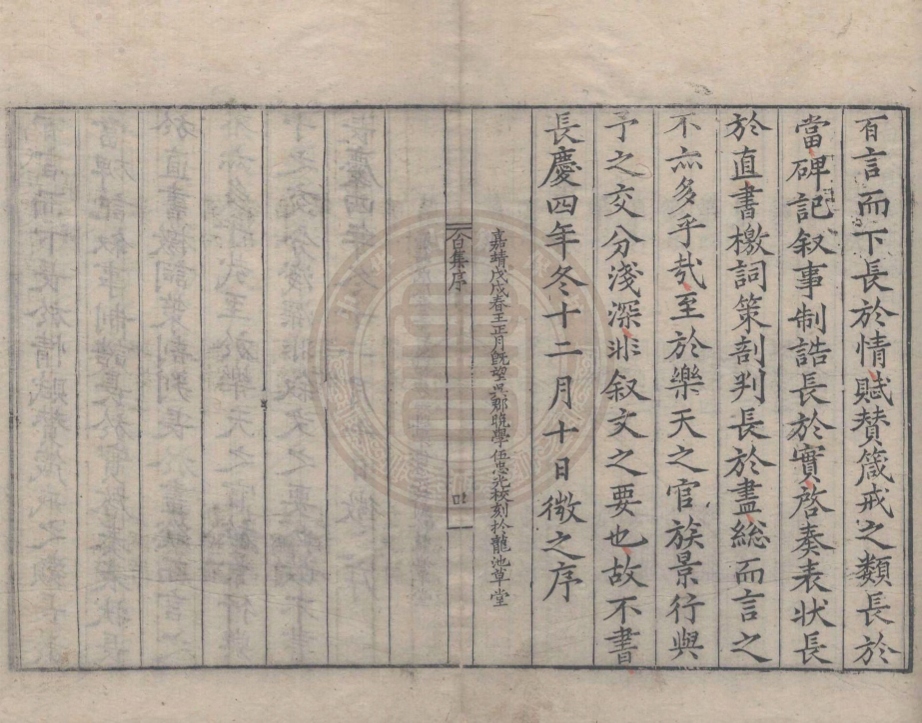 百言而下長於情賦賛箴戒之類長於
當碑記叙事制誥長於實啓奏表狀長
於直書檄詞策剖判長於盡緫而言之
不亦多乎㢤至於樂天之官族景行與
予之交分淺深非叙文之要也故不書
長慶四年冬十二月十日微之序
嘉靖戊戌春王正月旣望吳郡晚學伍忠光校刻於龍池草堂
白集序
四